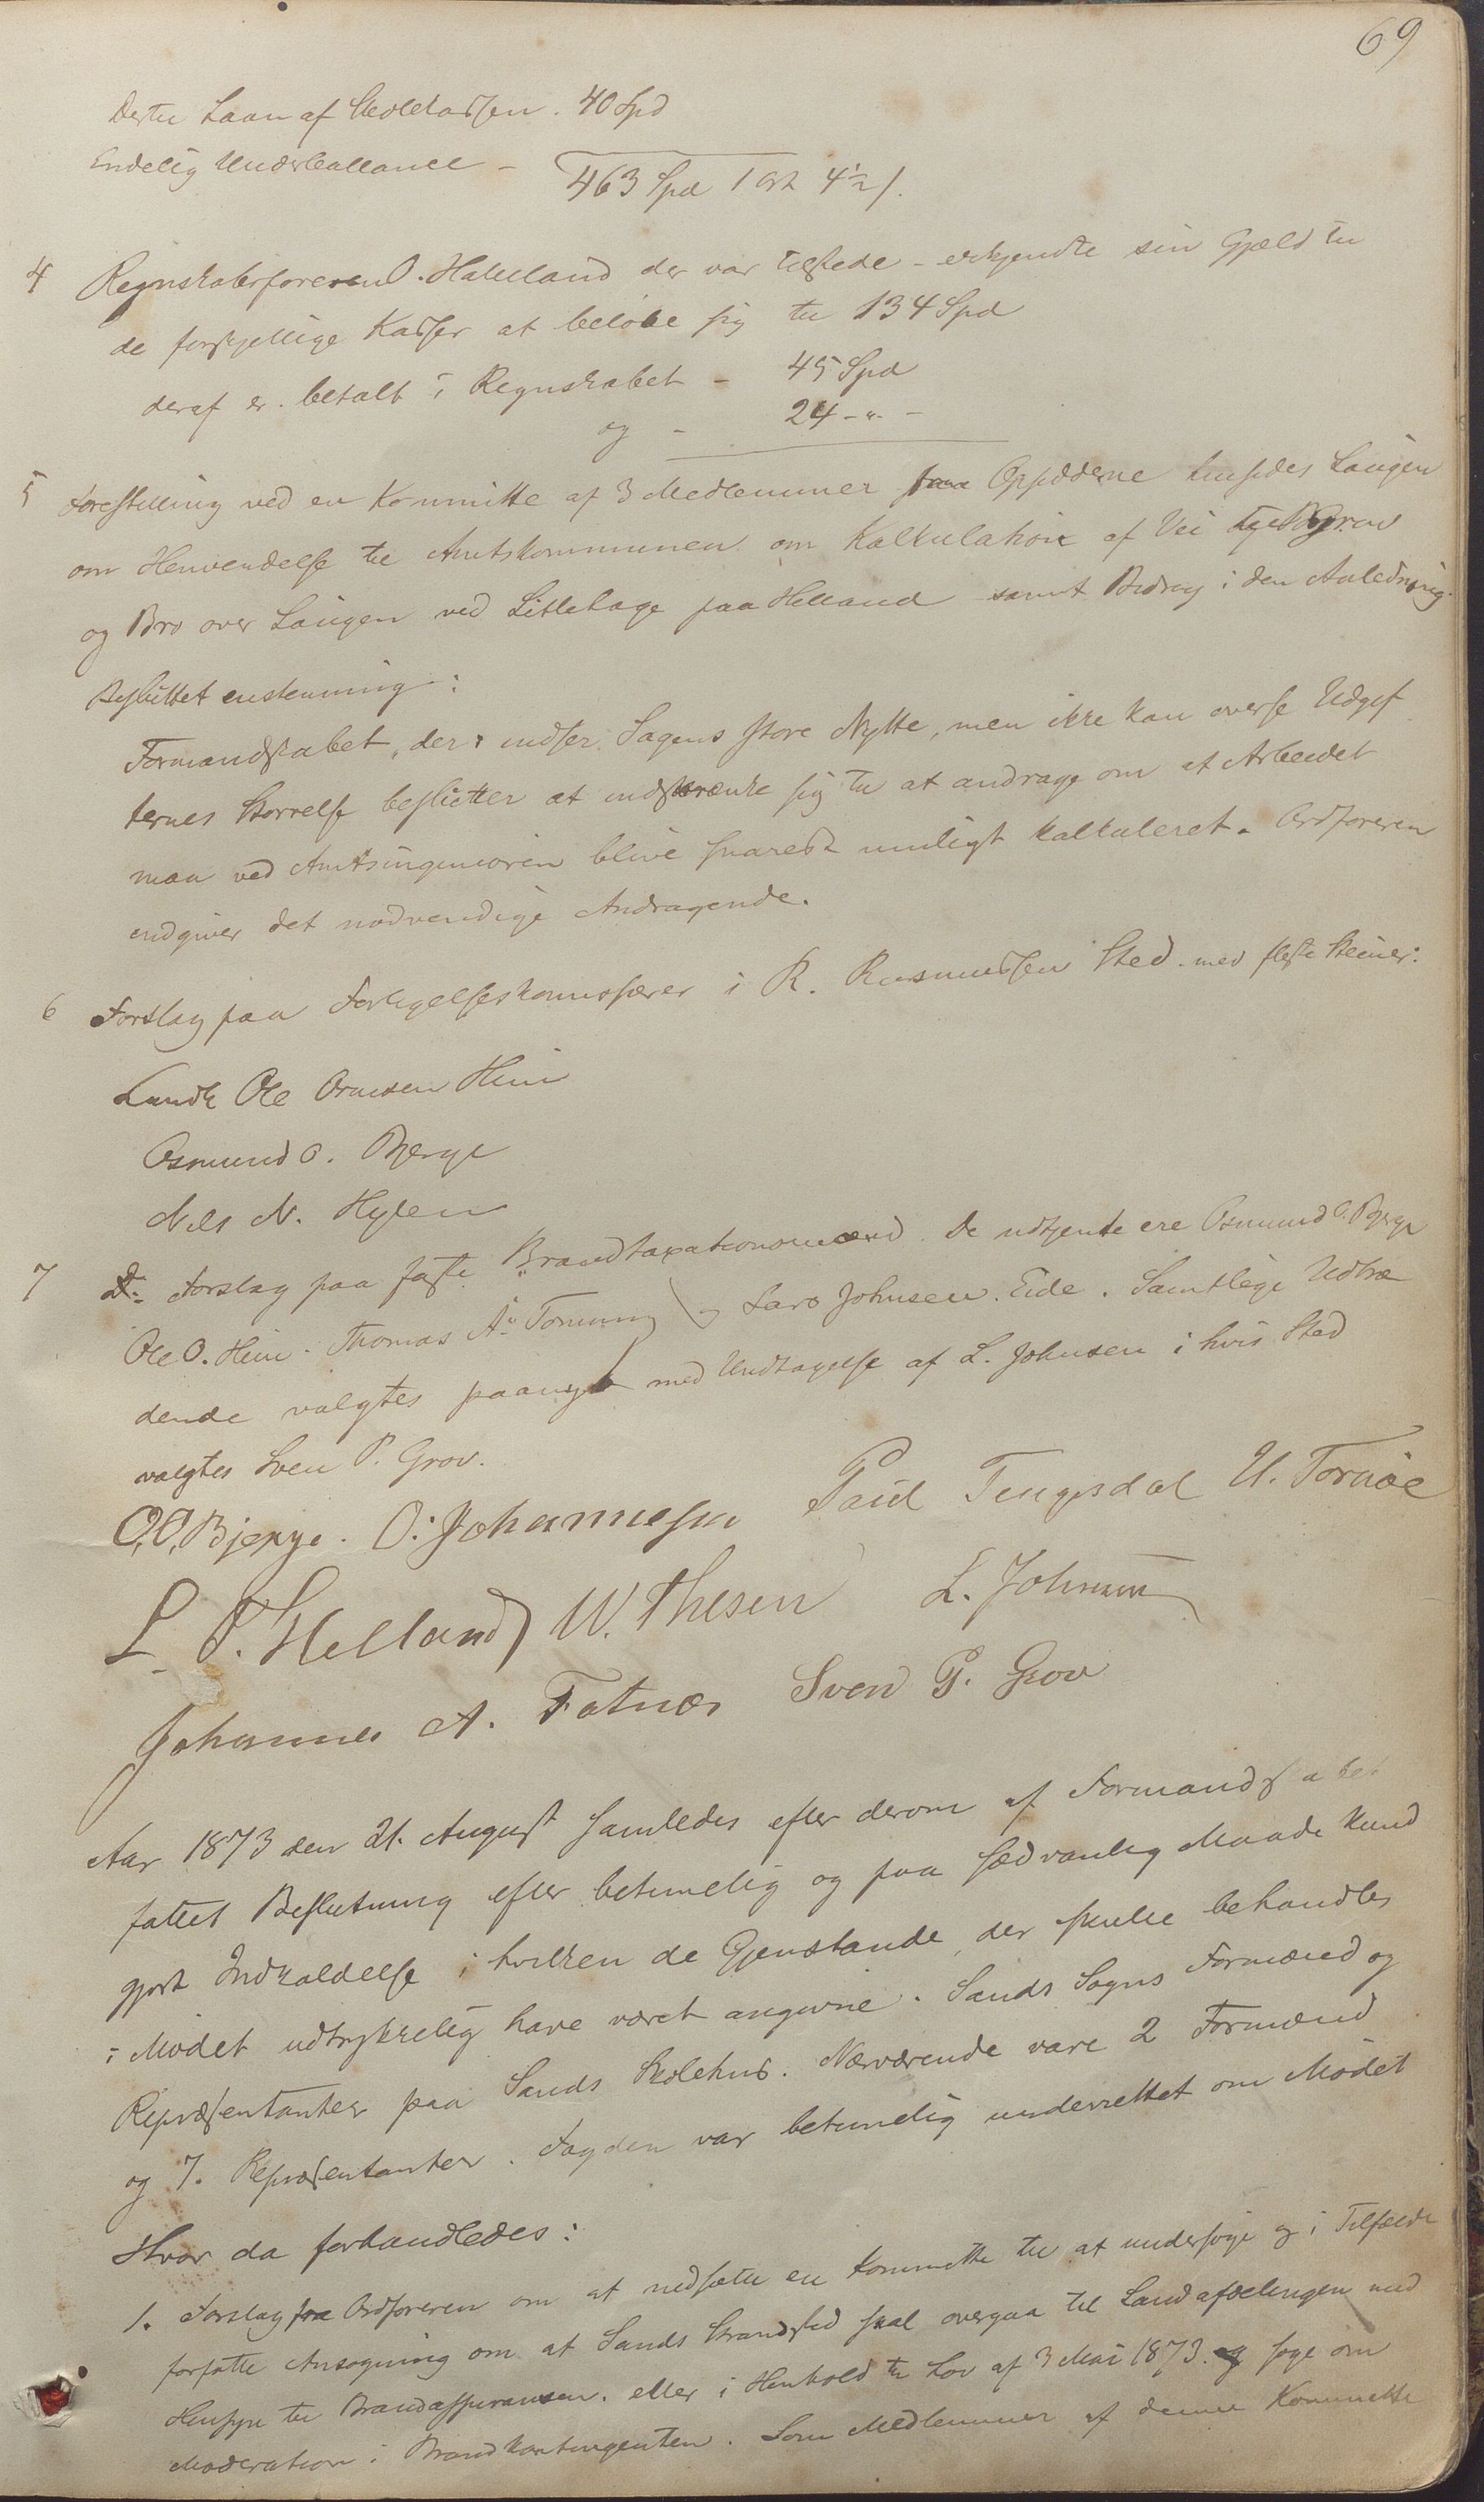 69
Dertil Laan af Skolekassen. 40 Spd
Endelig Underballance - 463 Spd 1 Ort 4½ /.
4 Regnskabsføreren O. Hakeland der var tilstede - erkjendte sin Gjæld til
de forskjellige Kasser at beløbe sig til 134 Spd
deraf er betalt i Regnskabet - 45 Spd
og - 24 - " -
5 Forestilling ved en Kommitte af 3 Medlemmer fra Opsidderne hinsides Laugen
om Henvendelse til Amtskommunen om Kalkulation af Vei
og Bro over Laugen ved Litlehage paa Helland samt Bidrag i den Anledning.
Besluttet enstemmig:
Formandskabet, der indser Sagens store Nytte, men ikke kan overse Udgif
ternes Størrelse beslutter at indskrænke sig til at andrage om at Arbeidet
maa ved Amtsingeniøren blive snarest muligt kalkuleret. Ordføreren
indgiver det nødvendige Andragende.
6 Forslag paa Forligelseskommissærer i R. Rasmussen Sted med fleste Stemmer:
Landh. Ole Ormsen Hiim
Osmund O. Bjerge
Nils N. Hylen
7 Do Forslag paa faste Brandtaxationsmænd. De udtjente ere Osmund O. Bjerge
Ole O. Hiim. Thomas A. og Lars Johnsen Eide. Samtlige Udtræ
dende valgtes paanyt med Undtagelse af L. Johnsen i hvis Sted
valgtes Sven P. Grov.
O.O. Bjerge. O. Johannesen Paul Tengesdal U. Tornøe
L. T. Helland W. Thesen L. Johnsen
Johannes A. Fatnes Sven P. Grov
Aar 1873 den 21. August samledes efter derom af Formandskabet
fattet Beslutning efter betimelig og paa sædvanlig Maade kund
gjort Indkaldelse i hvilken de Gjenstande, der skulle behandles
i Mødet udtrykkelig have været angivne. Sands Sogns Formænd og
Repræsentanter paa Sands Skolehus. Nærværende vare 2 Formænd
og 7. Repræsentanter. Fogden var betimelig underrettet om Mødet
Hvor da forhandledes:
1. Forslag fra Ordføreren om at nedsætte en Kommitte til at undersøge og i Tilfælde
forfatte Ansøgning om at Sands Strandsted skal overgaa til Landafdelingen med
Hensyn til Brandassurancen. eller i Henhold til Lov af 3 Mai 1873. søge om
Moderation i Brandkontingenten. Som Medlemmer af denne Kommitte